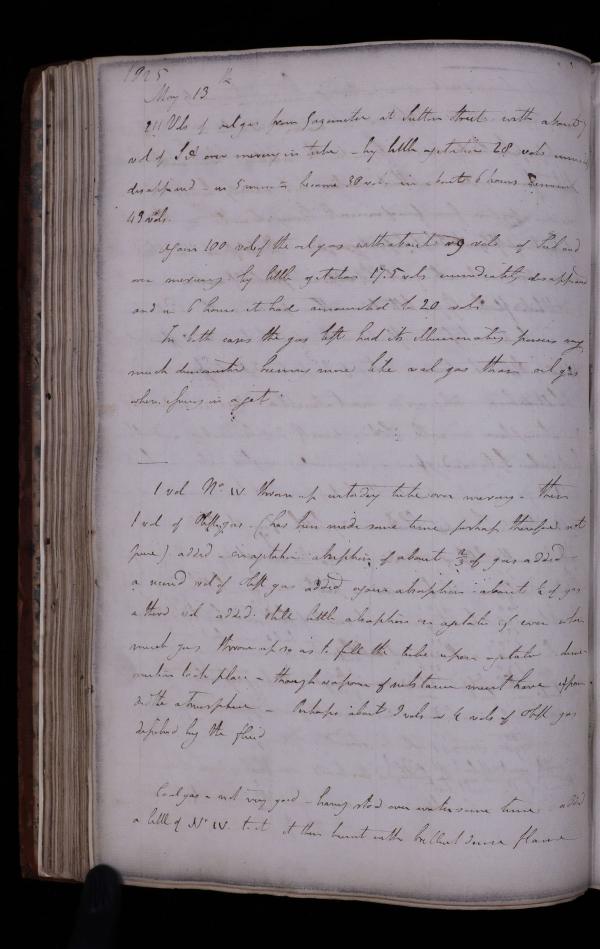 1825
May 13th
211 Vols of oil gas from Gazometer at Sutton Street with about
vol of S A over mercury in tube - by little agitation 28 vols
disappeared - in 5 became 38 vols in about 6 hours
49 vols.
Again 100 vols of the oil gas with about 9 vols of
over mercury by little agitation 17.5 vols immediately disappeared
and in 6 hours it had amounted to 20 vols
In both cases the gas left had its illuminating powers very
much diminished burning more like coal gas than oil gas
when in a jet
1 vol No. IV thrown up into dry tube over mercury - then
1 vol of Olefgas - (has been made some time perhaps therefore not
pure) added - on agitation absorption of about 2/3 of gas added
a second vol of Olef gas added again absorption about ½ of gas
a third vol added still little absorption on agitation even when
much gas thrown up so as to fill the tube upon agitation
took place - though vapour of substance must have
the atmosphere - Perhaps about 2 vols or of Olef gas
by the fluid
Coal gas - not very good - having stood over water some time added
a little of No. IV. to it it then burnt with brilliant dense flame